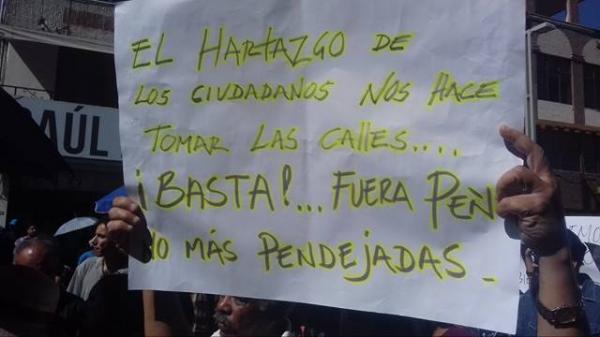 EL HARTAZGO DE
LOS CIUDADANOS NOS HACE
TOMAR LAS CALLES....
¡BASTA!... FUERA PEÑ
NO MÁS PENDEJADAS_
AÚL